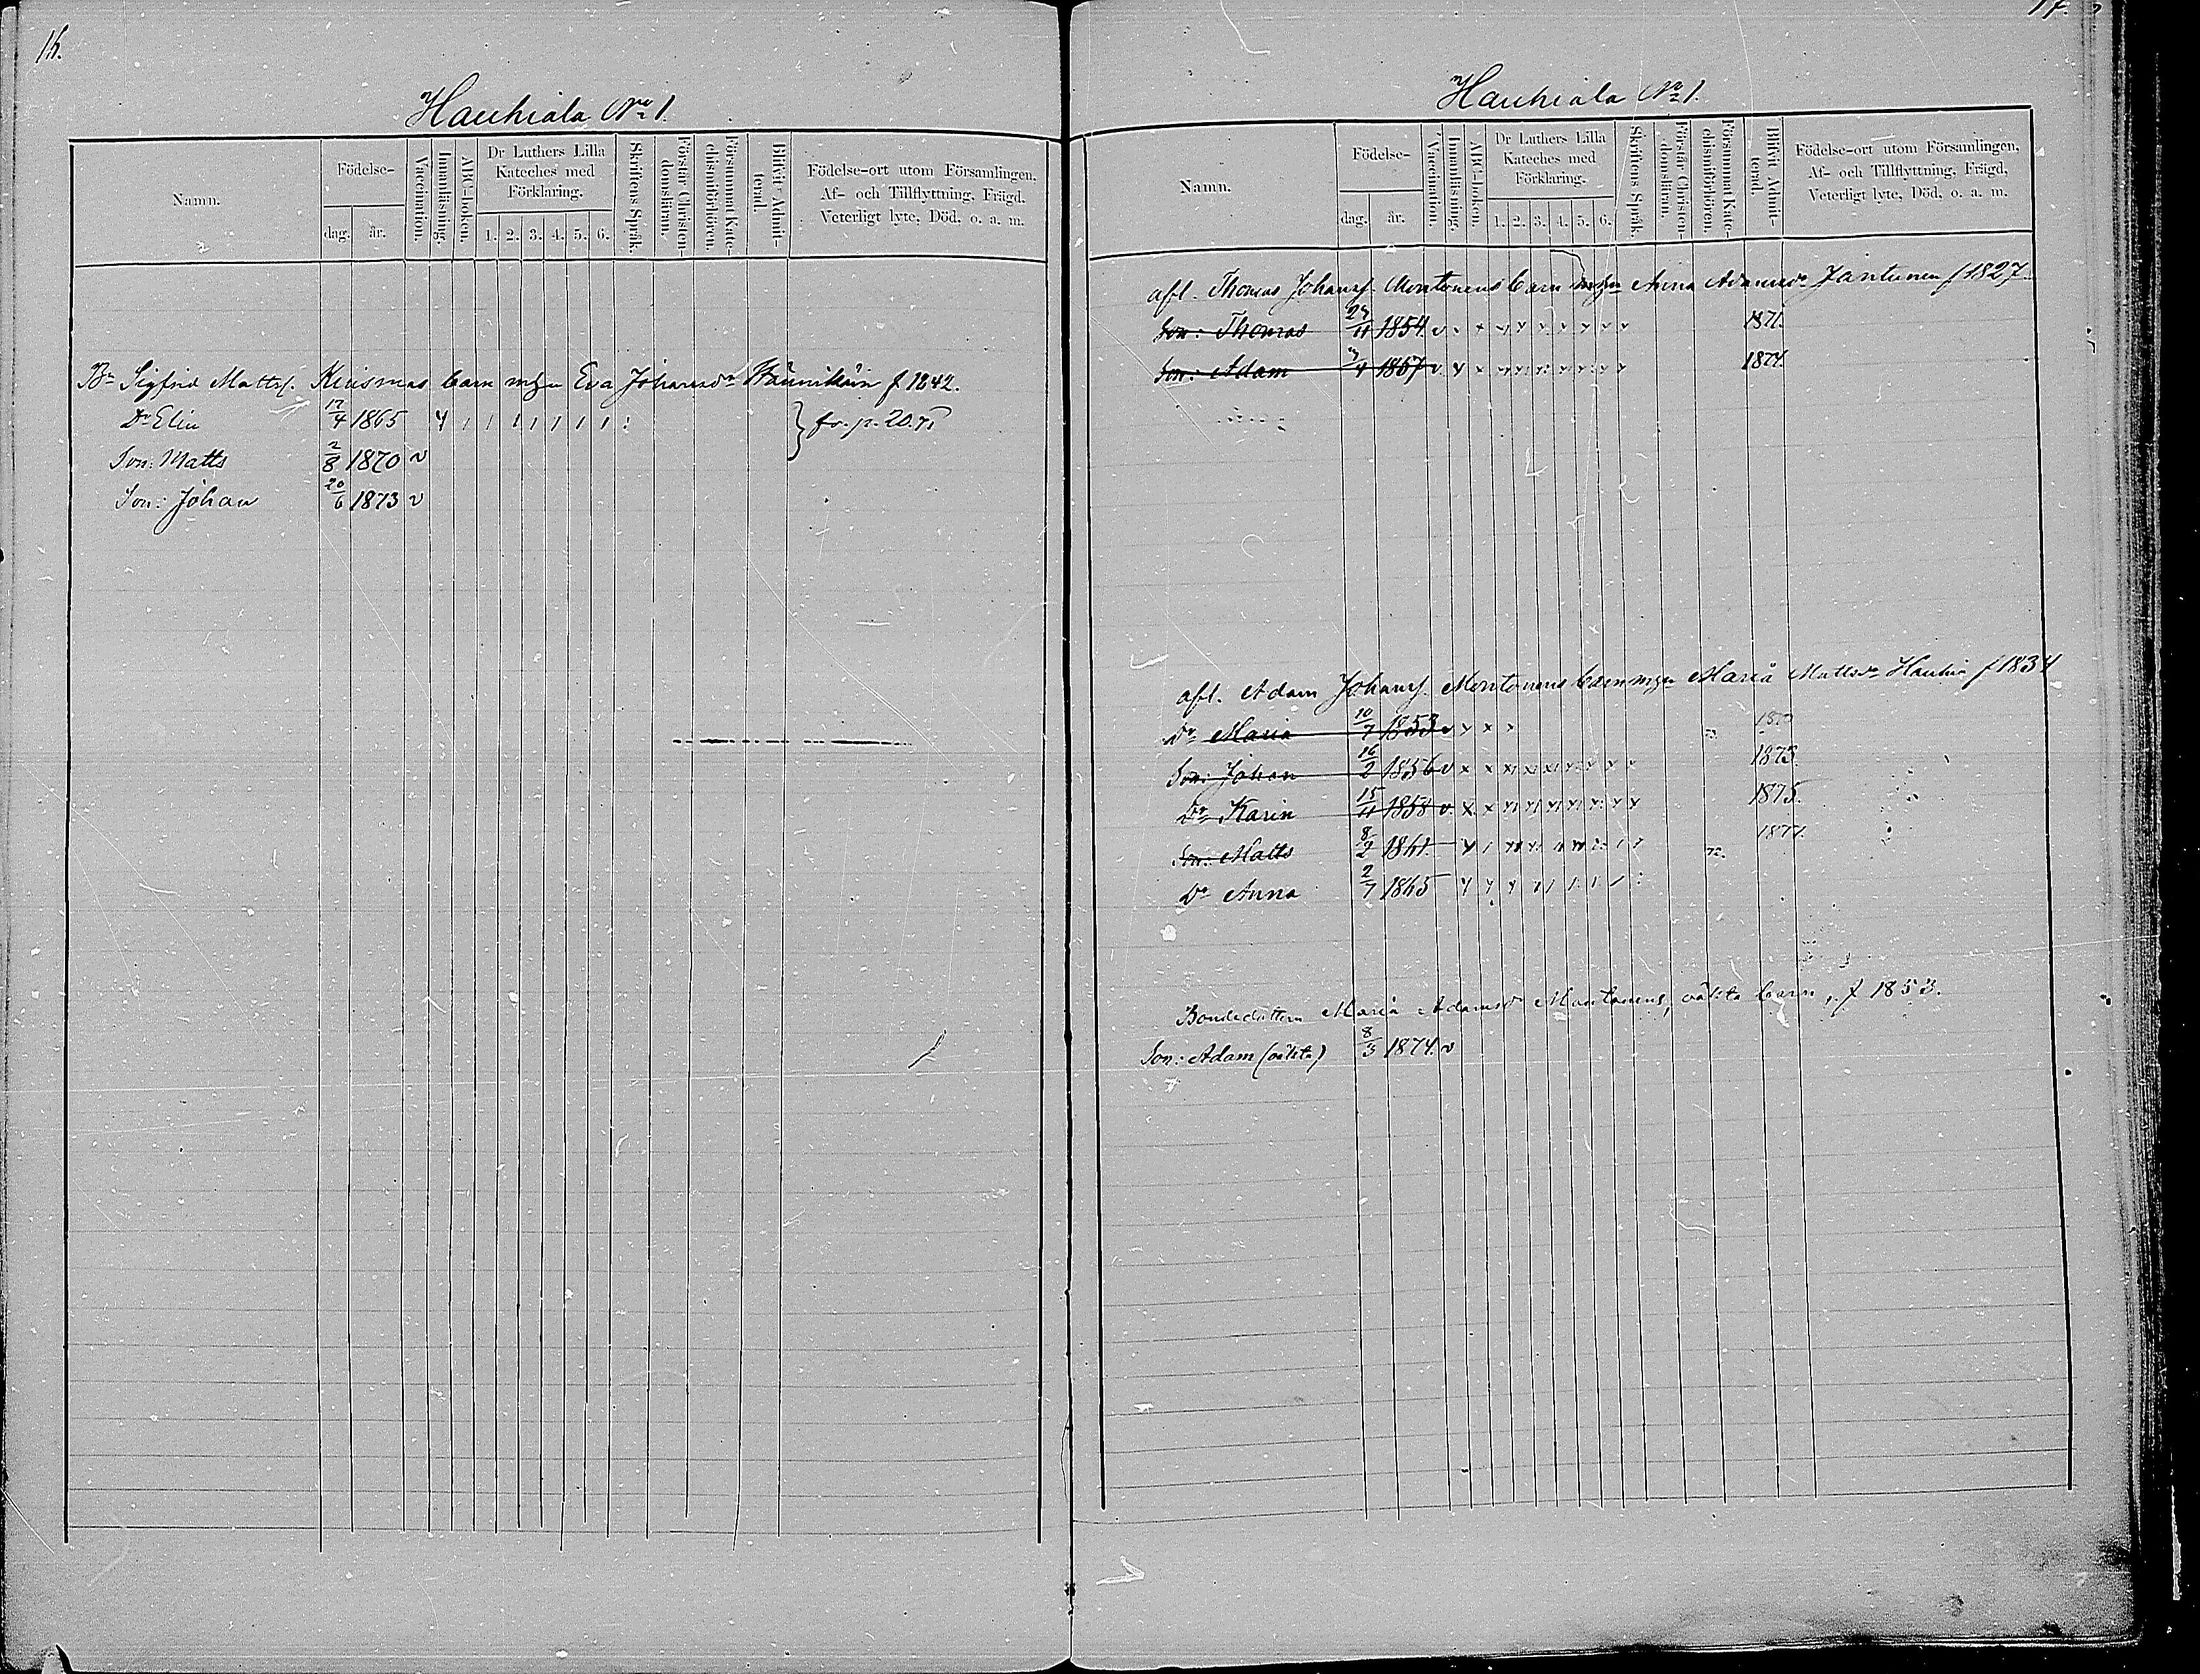 16.
Hauhiala No 1.
Namn.
Födelse-
dag. år.
Vaccination.
Innanläsning.
ABC-boken.
Dr Luthers Lilla Kateches med Förklaring.
1. 2. 3. 4. 5. 6.
Skriftens Språk.
Förstår Christendomsläran.
Försummat Katechismiförhören.
Blifvit Admitterad.
Födelse-ort utom Församlingen,
Af- och Tillflyttning, Frägd,
Veterligt lyte, Död, o. a. m.
Bn Sigfrid Mattss. Kuismas barn m hu Eva Johansdr f 1842.
Dr Elin 17/4 1865 fr. p. 20.
Son: Matts 2/8 1870 v
Son: Johan 20/6 1873 v
17.
Hauhiala No 1.
Namn.
Födelse-
dag. år.
Vaccination.
Innanläsning.
ABC-boken.
Dr Luthers Lilla Kateches med Förklaring.
1. 2. 3. 4. 5. 6.
Skriftens Språk.
Förstår Christendomsläran.
Försummat Katechismiförhören.
Blifvit Admitterad.
Födelse-ort utom Församlingen,
Af- och Tillflyttning, Frägd,
Veterligt lyte, Död, o. a. m.
afl. Thomas Johanss. Montonens barn m hu Anna Adamsdr Jantunen f 1827
Son: Thomas 1854 v 1871.
Son: Adam 1857 v 1874.
afl. Adam Johanss. Montonens barn m hu Maria Mattsdr Hauhia f 1834
Dr Maria 10/7 1853 v
Son: Johan 16/2 1856 v 1873
Dr Karin 15/11 1858 v 1875.
Son: Matts 8/2 1861. 1877.
Dr Anna 2/7 1865
Bondedottern Maria Adamsdr Montonens, oäkta barn, f 1853.
Son: Adam (oäkta) 8/3 1874. v